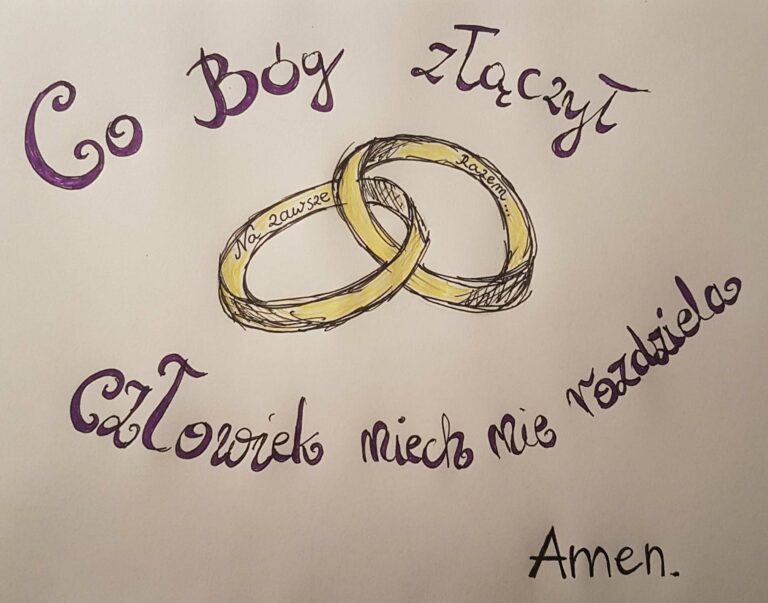 Co Bóg złączył
Na zawsze
Razem...
Człowiek niech nie rozdziela
Amen.